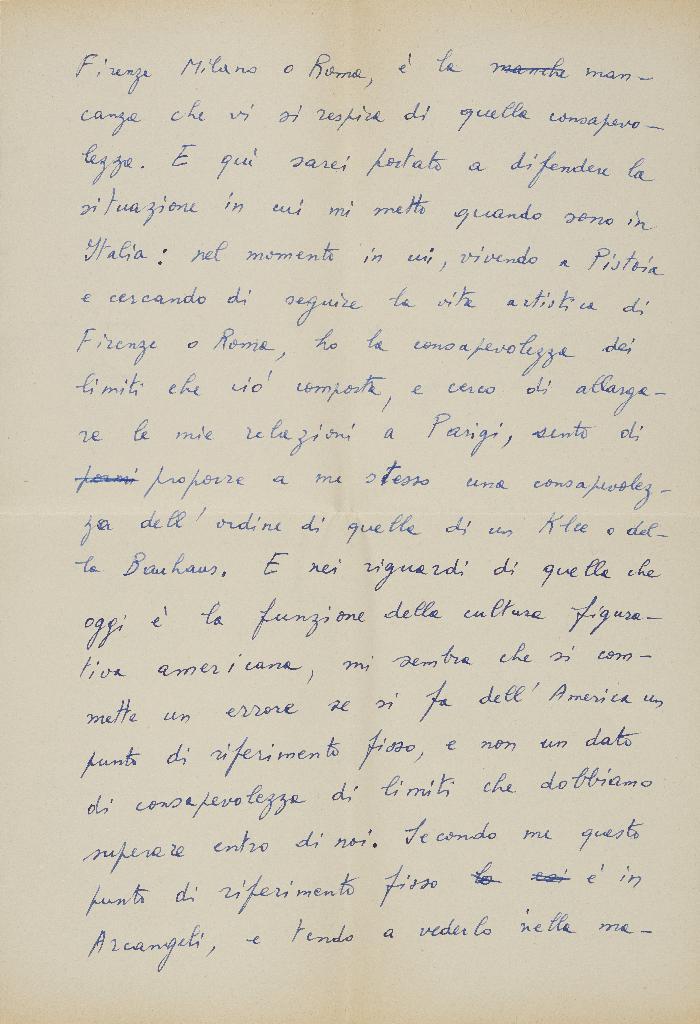 Firenze Milano o Roma, è la manche man-
canza che vi si respira di quella consapevo-
lezza. E qui sarei portato a difendere la
situazione in cui mi metto quando sono in
Italia: nel momento in cui, vivendo a Pistoia
e cercando di seguire la vita artistica di
Firenze o Roma, ho la consapevolezza dei
limiti che ciò comporta, e cerco di allarga-
re le mie relazioni a Parigi, sento di
pormi proporre a me stesso una consapevolez-
za dell'ordine di quella di un Klee o del-
la Bauhaus. E nei riguardi di quella che
oggi è la funzione della cultura figura-
tiva americana, mi sembra che si com-
mette un errore se si fa dell'America un
punto di riferimento fisso, e non un dato
di consapevolezza di limiti che dobbiamo
superare entro di noi. Secondo me questo
punto di riferimento fisso lo è in
Arcangeli, e tendo a vederlo nella ma-